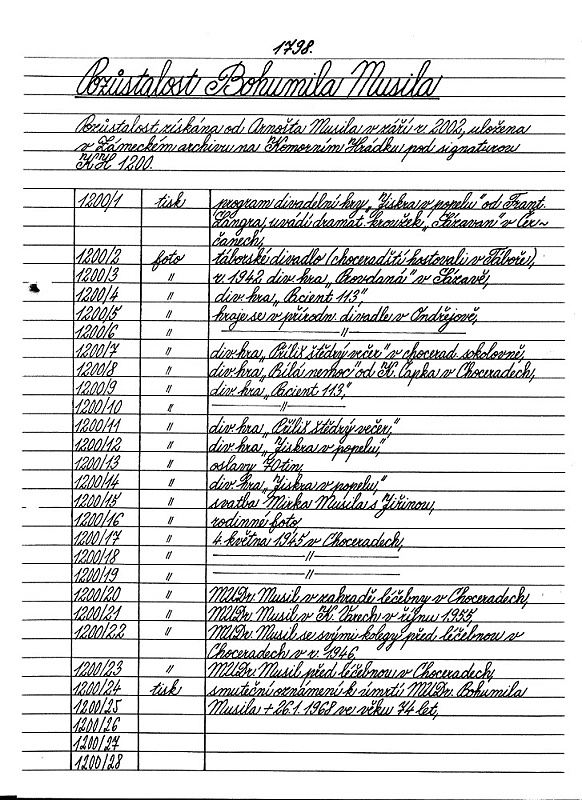 1798.
Pozůstalost Bohumila Musila
Pozůstalost získána od Arnošta Musila v září r. 2002, uložena
v Zámeckém archivu na Komorním Hrádku pod signaturou
KH 1200.
1200/1 tisk program divadelní hry „Jiskra v popelu" od Frant.
Langra, uvádí dramat. kroužek „Sázavan" v Čer~
čanech,
1200/2 foto táborské divadlo (choceradští hostovali v Táboře),
1200/3 " r. 1942 div. hra „Provdaná" v Sázavě,
1200/4 " div. hra „Pacient 113",
1200/5 " hraje se v přírodn. divadle v Ondřejově,
1200/6 " — " —
1200/7 " div. hra „Příliš štědrý večer" v chocerad. sokolovně,
1200/8 " div. hra „Bílá nemoc" od K. Čapka v Choceradech,
1200/9 " div. hra „Pacient 113",
1200/10 " — " —
1200/11 " div. hra „Příliš štědrý večer,"
1200/12 " div. hra „Jiskra v popelu,"
1200/13 " oslavy 70tin,
1200/14 " div. hra „Jiskra v popelu,"
1200/15 " svatba Mirka Musila s Jiřinou,
1200/16 " rodinné foto,
1200/17 " 4. května 1945 v Choceradech,
1200/18 " — " —
1200/19 " — " —
1200/20 " MUDr. Musil v zahradě léčebny v Choceradech,
1200/21 " MUDr. Musil v K. Varech v říjnu 1955,
1200/22 " MUDr. Musil se svými kolegy před léčebnou v
Choceradech v r. 1946,
1200/23 " MUDr. Musil před léčebnou v Choceradech,
1200/24 tisk smuteční oznámení k úmrtí MUDr. Bohumila
1200/25 Musila + 26.1. 1968 ve věku 74 let,
1200/26
1200/27
1200/28